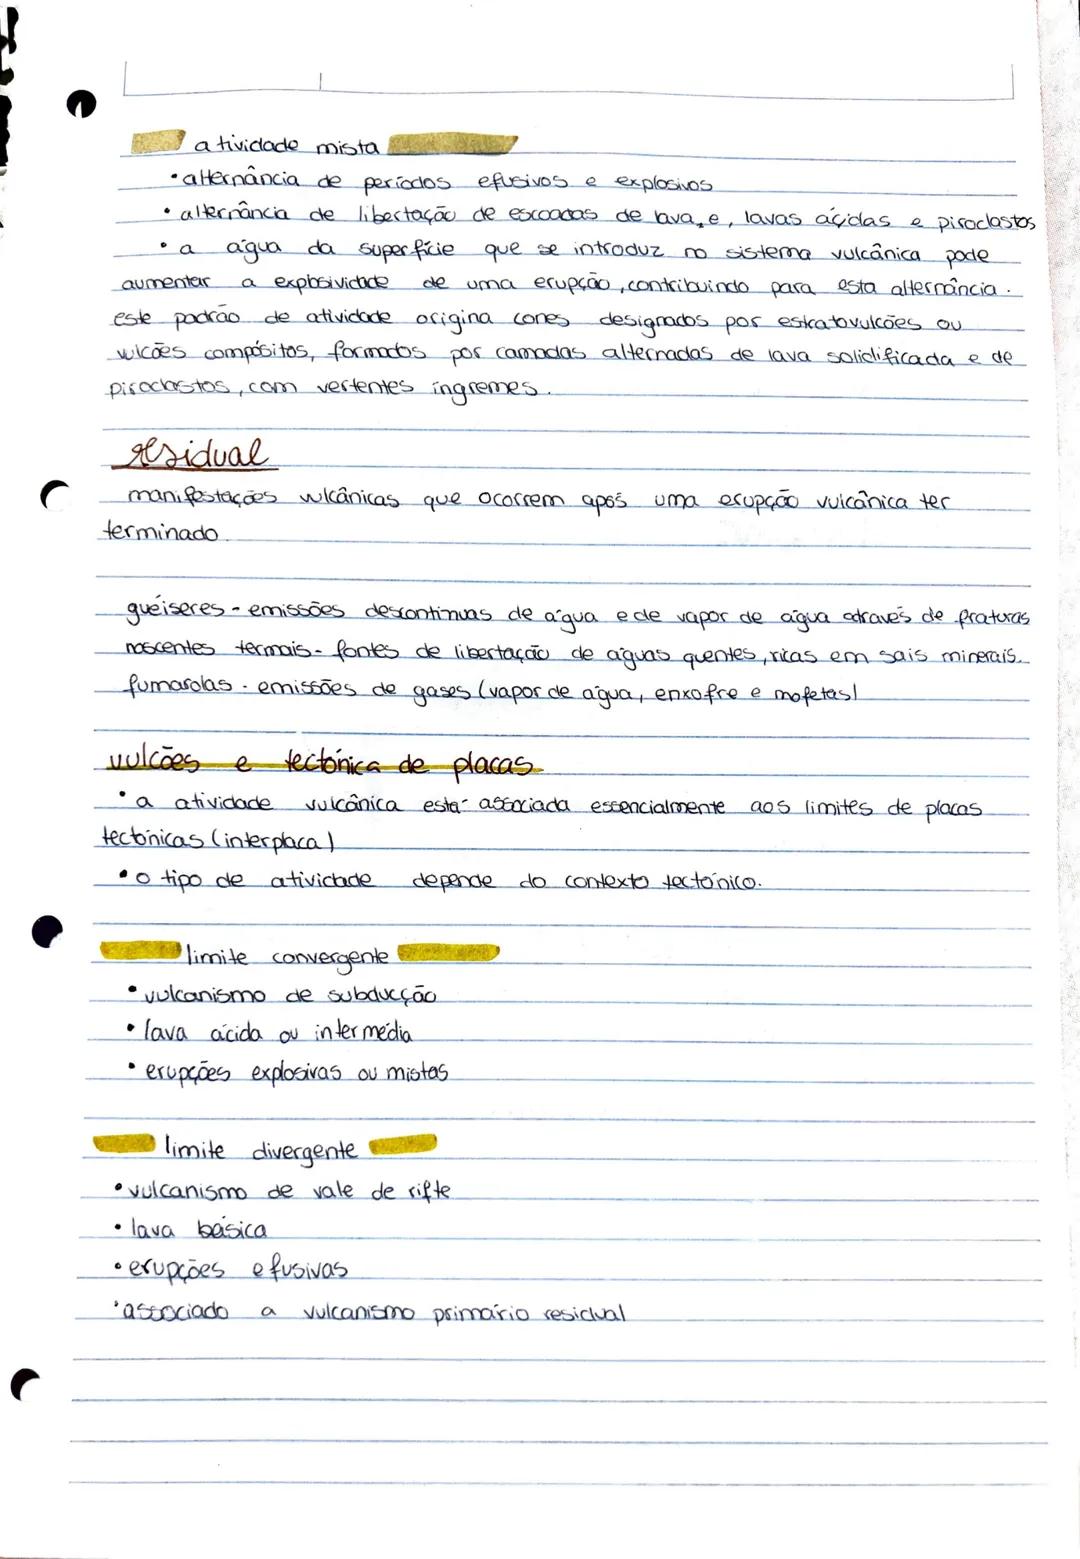 atividade mista
• alternância de períodos efusivos e explosivos
• alternância de libertação de escoadas de lava, e, lavas ácidas e piroclastos
• a água da superfície que se introduz no sistema vulcânica pode
aumentar a explosividade de uma erupção, contribuindo para esta alternância.
este padrão de atividade origina cones designados por estratovulcões ou
vulcões compósitos, formados por camadas alternadas de lava solidificada e de
piroclastos, com vertentes íngremes.
residual
manifestações vulcânicas que ocorrem após uma erupção vulcânica ter
terminado.
guéiseres - emissões descontínuas de água e de vapor de água através de fraturas
nascentes termais - fontes de libertação de águas quentes, ricas em sais minerais.
fumarolas - emissões de gases (vapor de água, enxofre e mofetas)
vulcões e tectónica de placas
• a atividade vulcânica está associada essencialmente aos limites de placas
tectónicas (interplaca)
• o tipo de atividade depende do contexto tectónico.
limite convergente
• vulcanismo de subducção
• lava ácida ou intermédia
• erupções explosivas ou mistas
limite divergente
• vulcanismo de vale de rifte
• lava básica
• erupções efusivas
• associado a vulcanismo primário residual